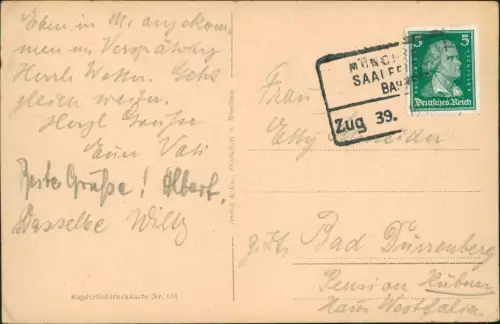 Eben in M. angekom-
men m. Verspätung
Herrl. Wetter. Gehts
gleich weiter.
Herzl. Grüsse
Euer Vati
Beste Grüsse! Albert.
Dasselbe Willy
Kupfertiefdruckkarte Nr.
MÜNCH
SAALFE
BAH
Zug 39.
5 5
Deutsches Reich
Frau
Etty Schneider
z. Zt. Bad Dürrenberg
Pension Hübner
Haus Westfalia